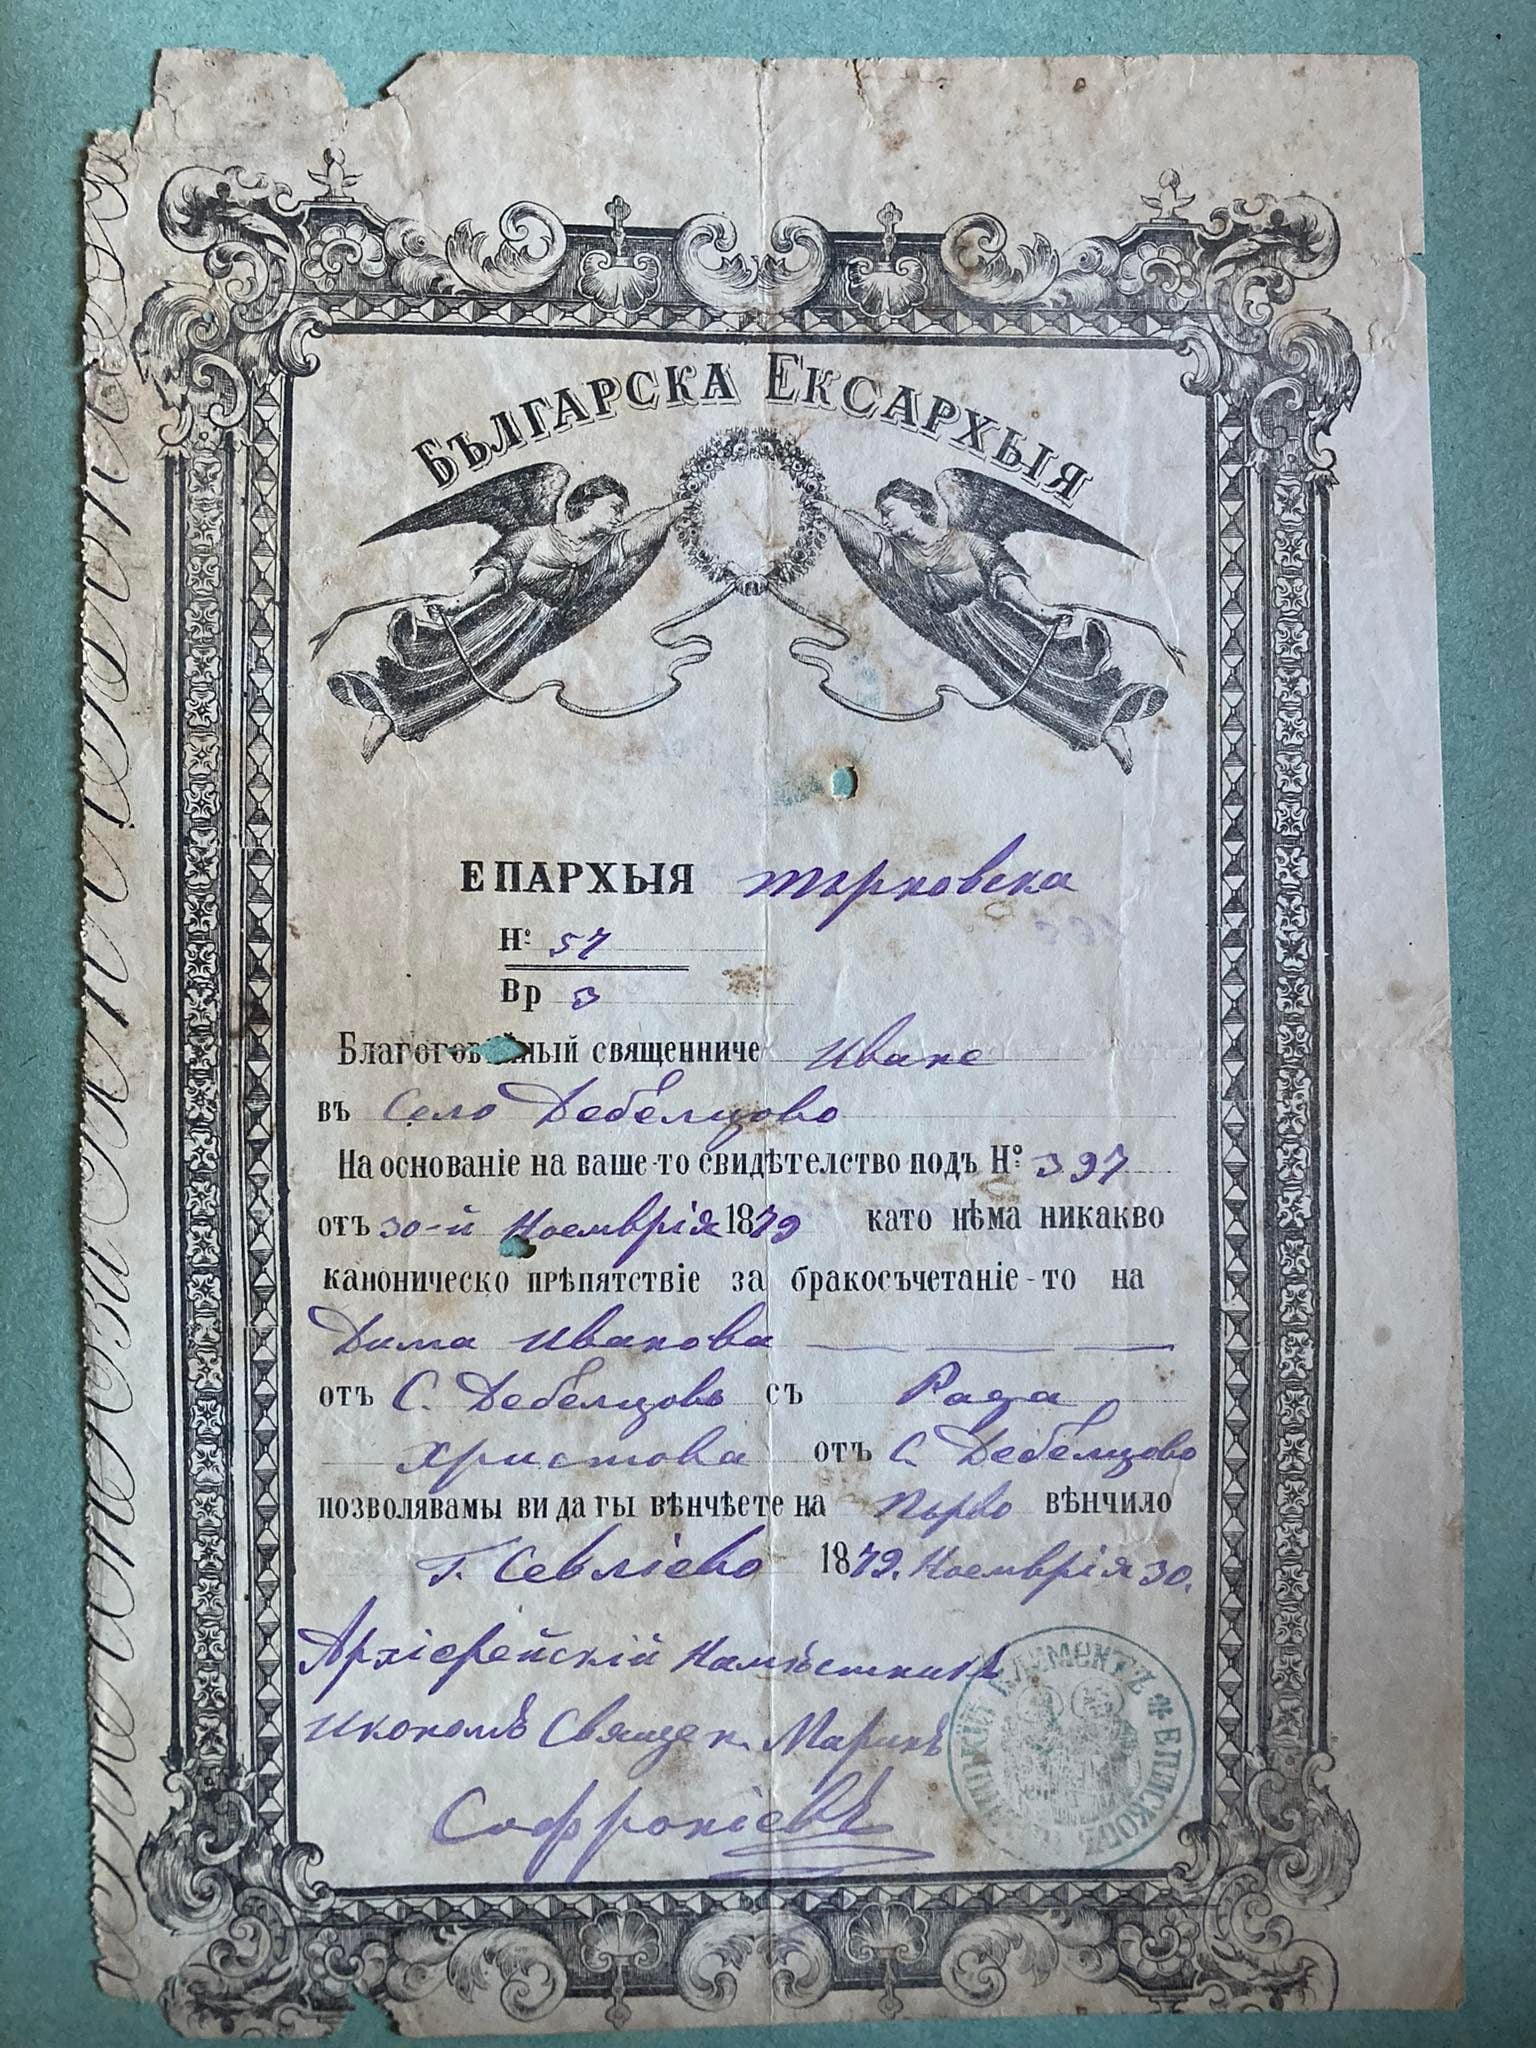 Българска Ексархыя
Епархыя търновска
Н: 57
Вр 3
Благогов ный священниче Иване
въ Село Дебелцово
На основаніе на ваше-то свидѣтелство подъ Н: 397
отъ 30-й Ноемврія 1879 като нѣма никакво
каноническо прѣпятствіе за бракосъчетаніе-то на
Дима Иванова
отъ С. Дебелцовъ съ Рада
Христова отъ С. Дебелцово
позволявамы ви да гы вѣнчѣете на Първо вѣнчило
Г. Севліево 1879. Ноемврія 30.
Архіерейскій Намѣстникъ
Икономъ Священ. Маринъ
Софроніевъ
Климентъ * Епископъ